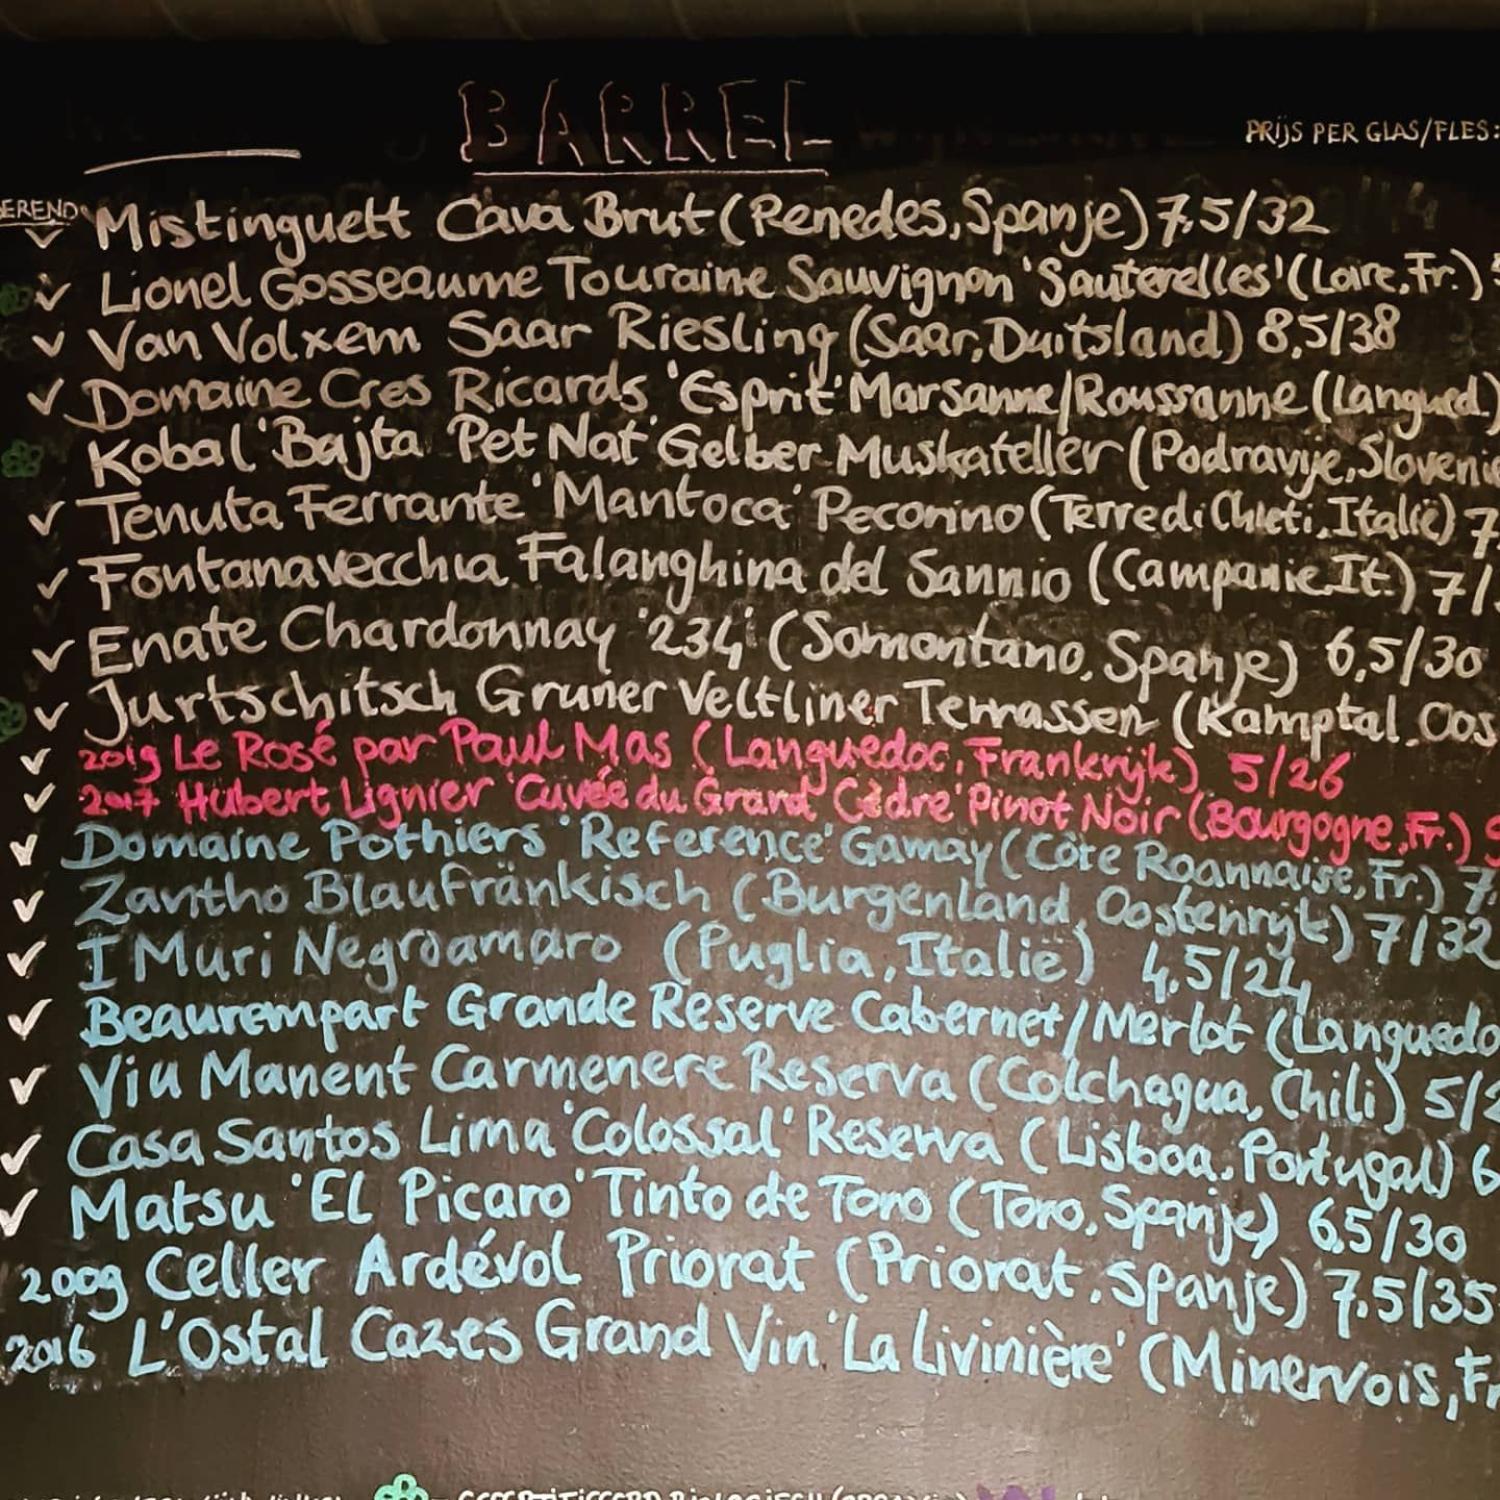 BARREL
PRIJS PER GLAS/FLES:
EREND
Mistinguett Cava Brut (Penedes, Spanje) 7,5/32
Lionel Gosseaume Touraine Sauvignon 'Sauterelles' (Loire, Fr.)
Van Volxem Saar Riesling (Saar, Duitsland) 8,5/38
Domaine Cres Ricards 'Esprit' Marsanne/Roussanne (Langued.)
Kobal 'Bajta Pet Nat' Gelber Muskateller (Podravje, Slovenie
Tenuta Ferrante 'Mantoca' Pecorino (Terre di Chieti, Italië) 7
Fontanavecchia Falanghina del Sannio (Campanie, It.) 7/
Enate Chardonnay '234' (Somontano, Spanje) 6,5/30
Jurtschitsch Gruner Veltliner Terrassen (Kamptal, Oos
2019 Le Rosé par Paul Mas (Languedoc, Frankrijk) 5/26
2017 Hubert Lignier 'Cuvée du Grand Cèdre' Pinot Noir (Bourgogne, Fr.) 9
Domaine Pothiers 'Reference' Gamay (Côte Roannaise, Fr.) 7
Zantho Blaufränkisch (Burgenland, Oostenrijk) 7/32
I Muri Negroamaro (Puglia, Italië) 4,5/24
Beaurempart Grande Reserve Cabernet/Merlot (Languedo
Viu Manent Carmenere Reserva (Colchagua, Chili) 5/2
Casa Santos Lima 'Colossal' Reserva (Lisboa, Portugal) 6
Matsu 'El Picaro' Tinto de Toro (Toro, Spanje) 6,5/30
2009 Celler Ardévol Priorat (Priorat, Spanje) 7,5/35
2016 L'Ostal Cazes Grand Vin 'La Livinière' (Minervois, Fr